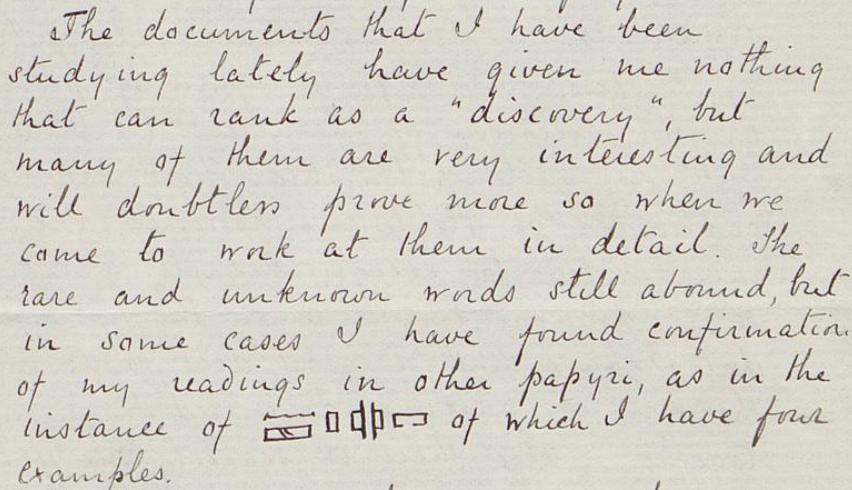 The documents that I have been
studying lately have given me nothing
that can rank as a "discovery", but
many of them are very interesting and
will doubtless prove more so when we
come to work at them in detail. The
rare and unknown words still abound, but
in some cases I have found confirmation
of my readings in other papyri, as in the
instance of of which I have four
examples.